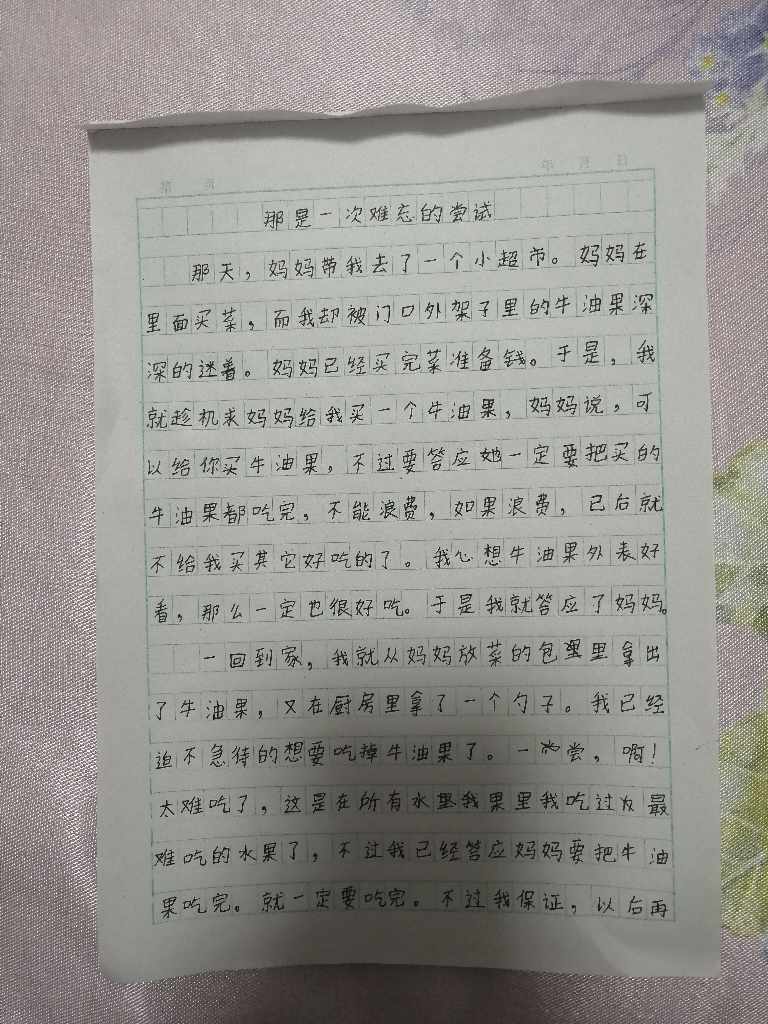 第 页 年 月 日
那是一次难忘的尝试
那天，妈妈带我去了一个小超市。妈妈在
里面买菜，而我却被门口外架子里的牛油果深
深的迷着。妈妈已经买完菜准备钱。于是，我
就趁机求妈妈给我买一个牛油果，妈妈说，可
以给你买牛油果，不过要答应她一定要把买的
牛油果都吃完，不能浪费，如果浪费，已后就
不给我买其它好吃的了。我心想牛油果外表好
看，那么一定也很好吃。于是我就答应了妈妈。
一回到家，我就从妈妈放菜的包里里拿出
了牛油果，又在厨房里拿了一个勺子。我已经
迫不急待的想要吃掉牛油果了。一尝，啊！
太难吃了，这是在所有水果里我吃过最
难吃的水果了，不过我已经答应妈妈要把牛油
果吃完。就一定要吃完。不过我保证，以后再